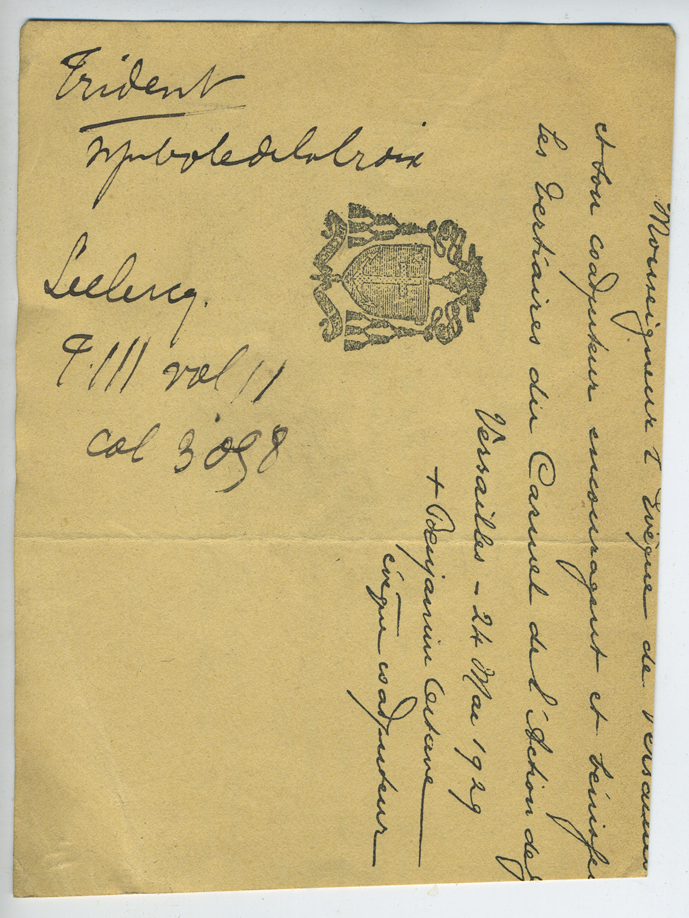 Trident
symbole de la Croix
Leclercq.
T. III vol II
col 3098
Monseigneur l'Evêque de Versailles
et son coadjuteur encouragent et bénissent
les Tertiaires du Carmel de l'Action de
Versailles - 24 Mai 1929
+ Benjamin Octave
évêque coadjuteur